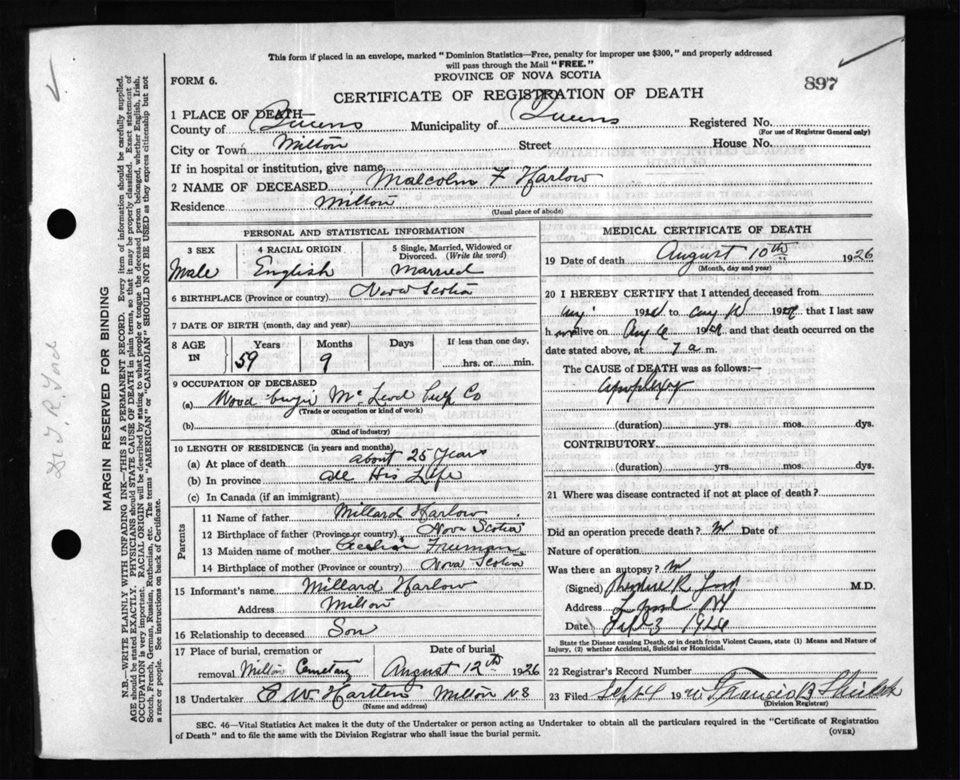 This form if placed in an envelope, marked "Dominion Statistics—Free, penalty for improper use $300," and properly addressed
will pass through the Mail "FREE."
FORM 6.
PROVINCE OF NOVA SCOTIA
897
CERTIFICATE OF REGISTRATION OF DEATH
1 PLACE OF DEATH—
County of Queens Municipality of Queens Registered No.
(For use of Registrar General only)
City or Town Milton Street House No.
If in hospital or institution, give name
2 NAME OF DECEASED Malcolm F Harlow
Residence Milton
(Usual place of abode)
PERSONAL AND STATISTICAL INFORMATION
3 SEX 4 RACIAL ORIGIN 5 Single, Married, Widowed or
Divorced. (Write the word)
Male English Married
6 BIRTHPLACE (Province or country) Nova Scotia
7 DATE OF BIRTH (month, day and year)
8 AGE Years Months Days If less than one day,
IN 59 9 hrs. or min.
9 OCCUPATION OF DECEASED
(a) Wood McLeod Pulp Co
(Trade or occupation or kind of work)
(b)
(Kind of industry)
10 LENGTH OF RESIDENCE (in years and months)
(a) At place of death about 25 Years
(b) In province all His Life
(c) In Canada (if an immigrant)
Parents
11 Name of father Millard Harlow
12 Birthplace of father (Province or country) Nova Scotia
13 Maiden name of mother Freeman
14 Birthplace of mother (Province or country) Nova Scotia
15 Informant's name Millard Harlow
Address Milton
16 Relationship to deceased Son
17 Place of burial, cremation or Date of burial
removal Milton Cemetary August 12th 1926
18 Undertaker Milton NS
(Name and address)
MEDICAL CERTIFICATE OF DEATH
19 Date of death August 10th 1926
(Month, day and year)
20 I HEREBY CERTIFY that I attended deceased from
Aug 192 to Aug 10 192 that I last saw
h alive on Aug 6 192 and that death occurred on
date stated above, at 7 a m.
The CAUSE of DEATH was as follows:—
apoplexy
(duration) yrs. mos. dys.
CONTRIBUTORY
(duration) yrs. mos. dys.
21 Where was disease contracted if not at place of death?
Did an operation precede death? Date of
Nature of operation
Was there an autopsy?
(Signed) R. Ford M.D.
Address
Date Sept 3 1926
State the Disease causing Death, or in death from Violent Causes, state (1) Means and Nature of
Injury, (2) whether Accidental, Suicidal or Homicidal.
22 Registrar's Record Number
23 Filed Sept 4 19 Francis B
(Division Registrar)
SEC. 46—Vital Statistics Act makes it the duty of the Undertaker or person acting as Undertaker to obtain all the particulars required in the "Certificate of Registration
of Death" and to file the same with the Division Registrar who shall issue the burial permit.
(OVER)
MARGIN RESERVED FOR BINDING
N.B.—WRITE PLAINLY WITH UNFADING INK—THIS IS A PERMANENT RECORD. Every item of information should be carefully supplied.
AGE should be stated EXACTLY. PHYSICIANS should STATE CAUSE OF DEATH in plain terms, so that it may be properly classified. Exact statement of
OCCUPATION is very important. RACIAL ORIGIN will be described by stating to what people or tongue the deceased person belonged, whether English, Irish,
Scotch, French, German, Russian, Ruthenian, etc. The terms "AMERICAN" or "CANADIAN" SHOULD NOT BE USED as they express citizenship but not
a race or people. See instructions on back of Certificate.